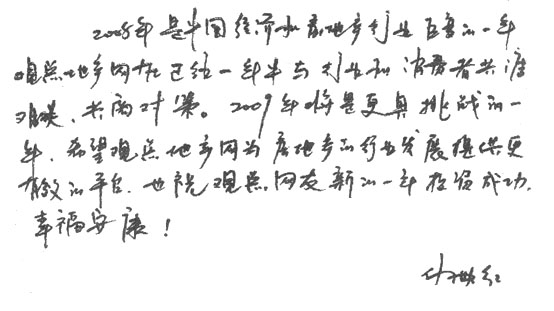 2008年是中国经济和房地产行业巨变的一年
观点地产网在已经一年半与行业和消费者共渡
难关、共商对策。2009年将是更具挑战的一
年,希望观点地产网为房地产的行业发展提供更
有效的平台.也祝观点网友新的一年投资成功,
幸福安康!